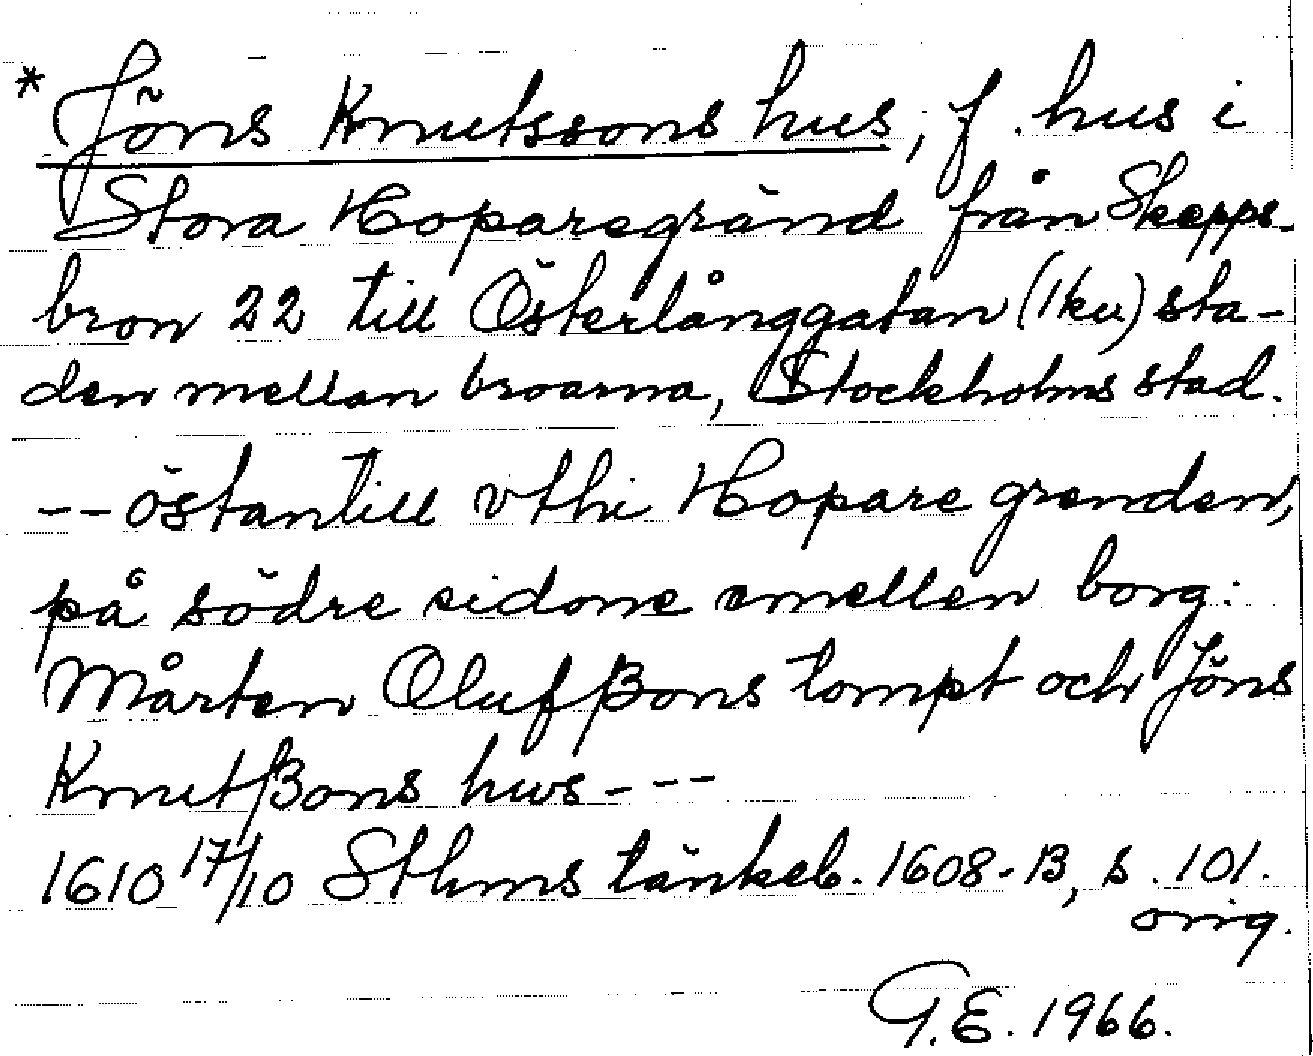 * Jöns Knutssons hus, f. hus i
Stora Hoparegränd från Skepps-
bron 22 till Österlånggatan (1ku) sta-
den mellan broarna, Stockholms stad.
-- östantill vthi Hopare grenden,
på södre sidone emellen borg:
Mårten Olufßons tompt och Jöns
Knutßons hws - --
1610 17/10 Sthms tänkeb. 1608-13, s. 101.
orig.
G.E. 1966.